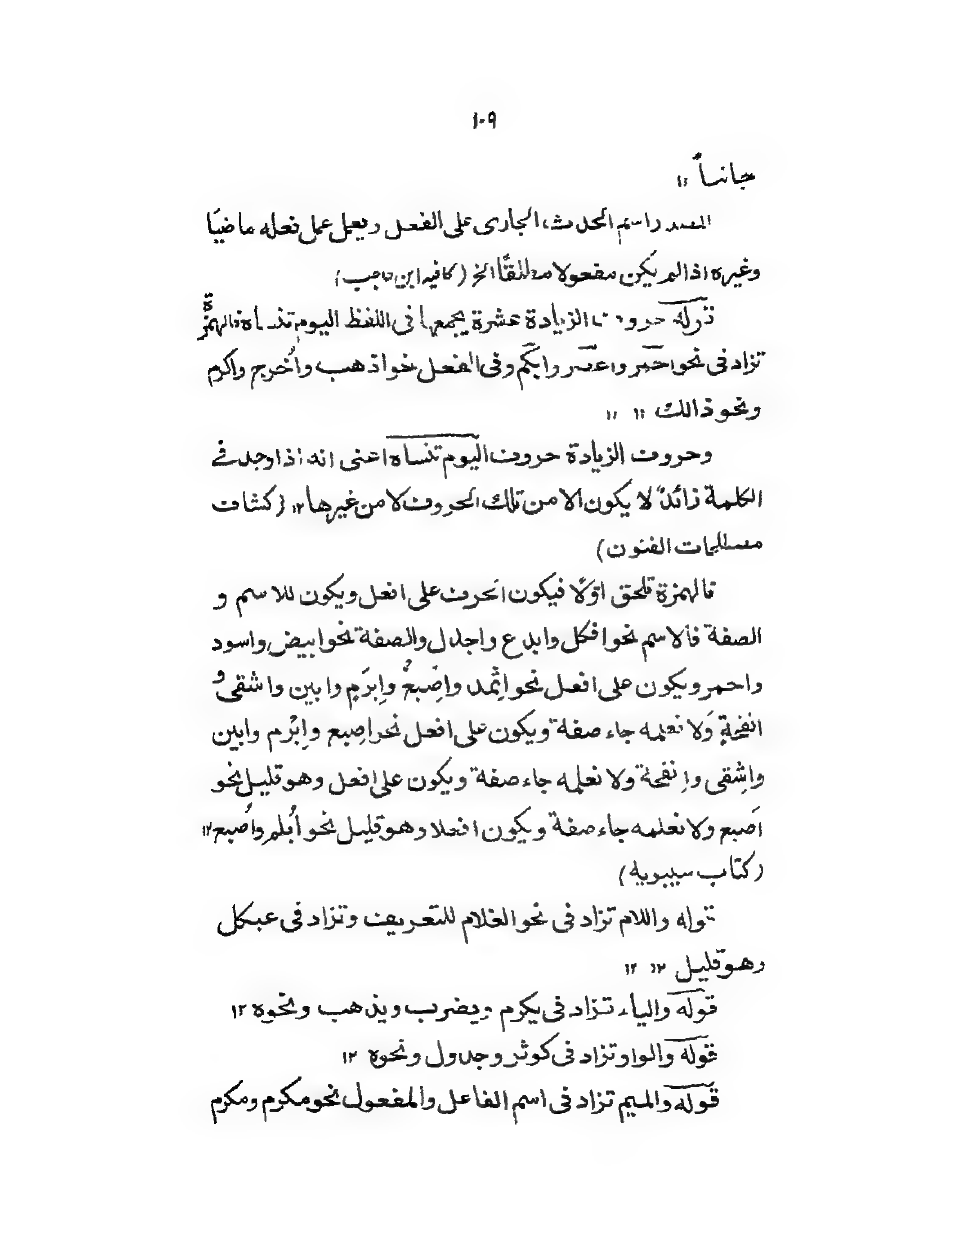 ١٠٩
جانباً ١٢
المصدر اسم الحدث الجاری علی الفعل ویعمل عمل فعله ماضیًا
وغیره اذا لم یکن مفعولا مطلقًا الخ (کافیه ابن حاجب)
قوله حروف الزیادة عشرة یجمعها فی اللفظ الیوم تنساه فالهمزة
تزاد فی نحو احمر واعصر وابکم وفی الفعل نحو اذهب واُخرج واکرم
ونحو ذالک ١٢ ١٢
وحروف الزیادة حروف الیوم تنساه اعنی انه اذا وجد فے
الکلمة زائدٌ لا یکون الا من تلک الحروف لا من غیرها ١٢ (کشاف
مصطلحات الفنون)
فالهمزة تلحق اوّلًا فیکون الحرف علی افعل ویکون للاسم و
الصفة فالاسم نحو افکل وایدع واجدل والصفة نحو ابیض واسود
واحمر ویکون علی افعل نحو اِثمد واِصبَعٌ واِبرَمٍ وابین واشقیٰ و
انفحةٍ وَلا نعلمه جاء صفة ویکون علی افعل نحو اِصبع واِبْرم وابین
واِشقی واِنفحة ولا نعلمه جاء صفة ویکون علی افعل وهو قلیل نحو
اَصبع ولا نعلمه جاء صفة ویکون افعلا وهو قلیل نحو اُبلم واُصبع ١٢
(کتاب سیبویه)
قوله واللام تزاد فی نحو الغلام للتعریف وتزاد فی عبدل
وهو قلیل ١٢ ١٢
قوله والیاء تزاد فی یکرم ویضرب ویذهب ونحوه ١٢
قوله والواو تزاد فی کوثر وجدول ونحوه ١٢
قوله والمیم تزاد فی اسم الفاعل والمفعول نحو مکرم ومکرم